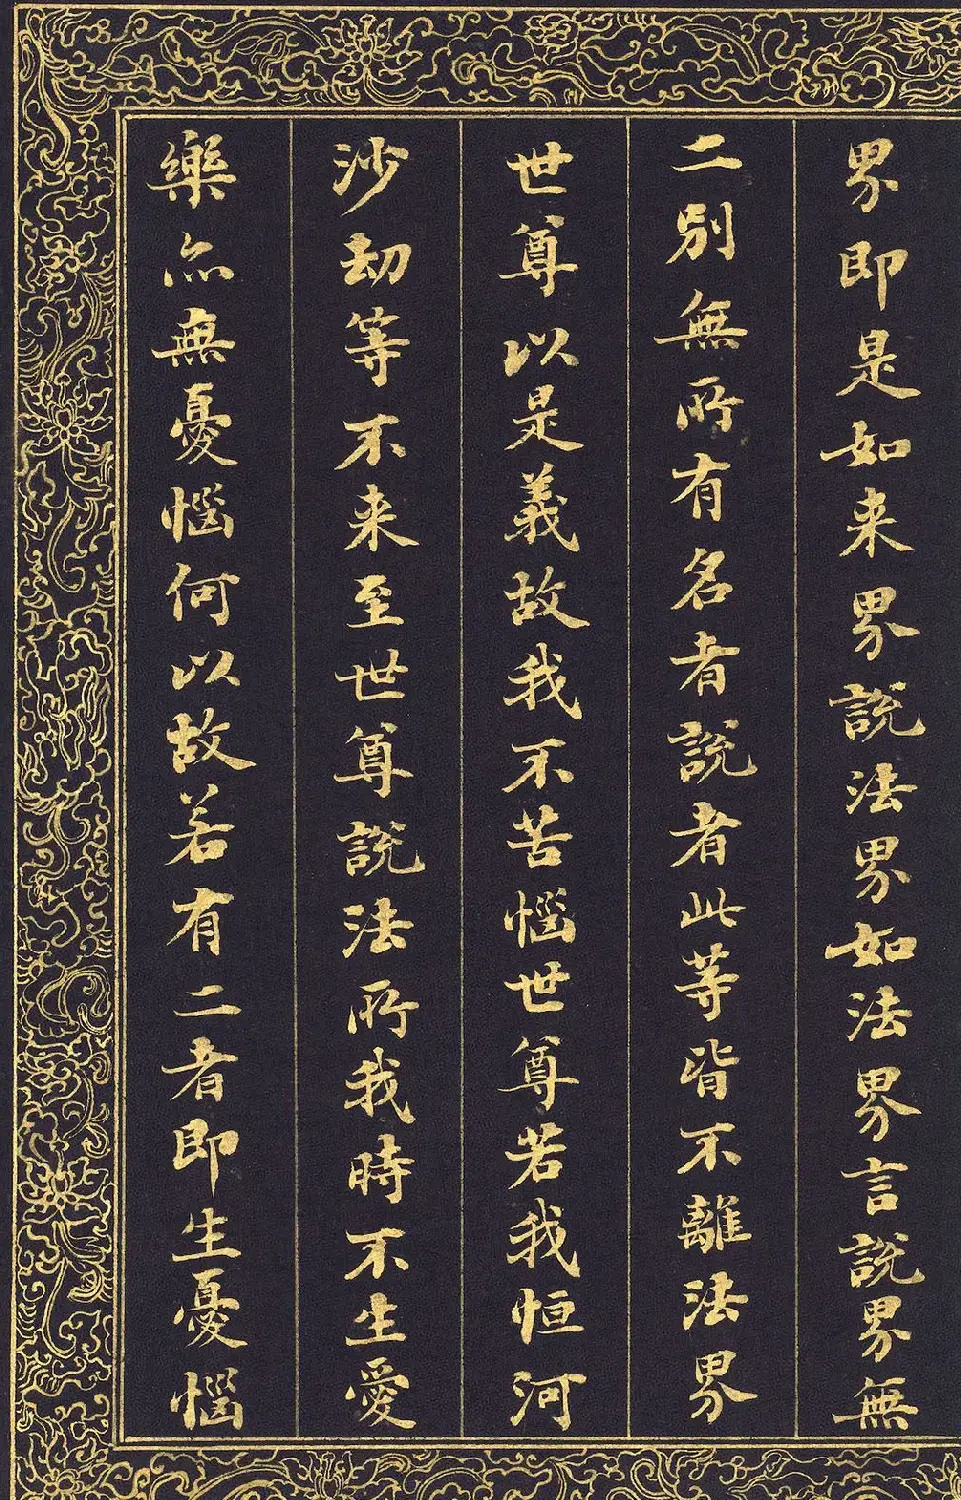 界即是如来界說法界如法界言說界無
二別無所有名者說者此等皆不離法界
世尊以是義故我不苦惱世尊若我恒河
沙劫等不来至世尊說法所我時不生愛
樂亦無憂惱何以故若有二者即生憂惱